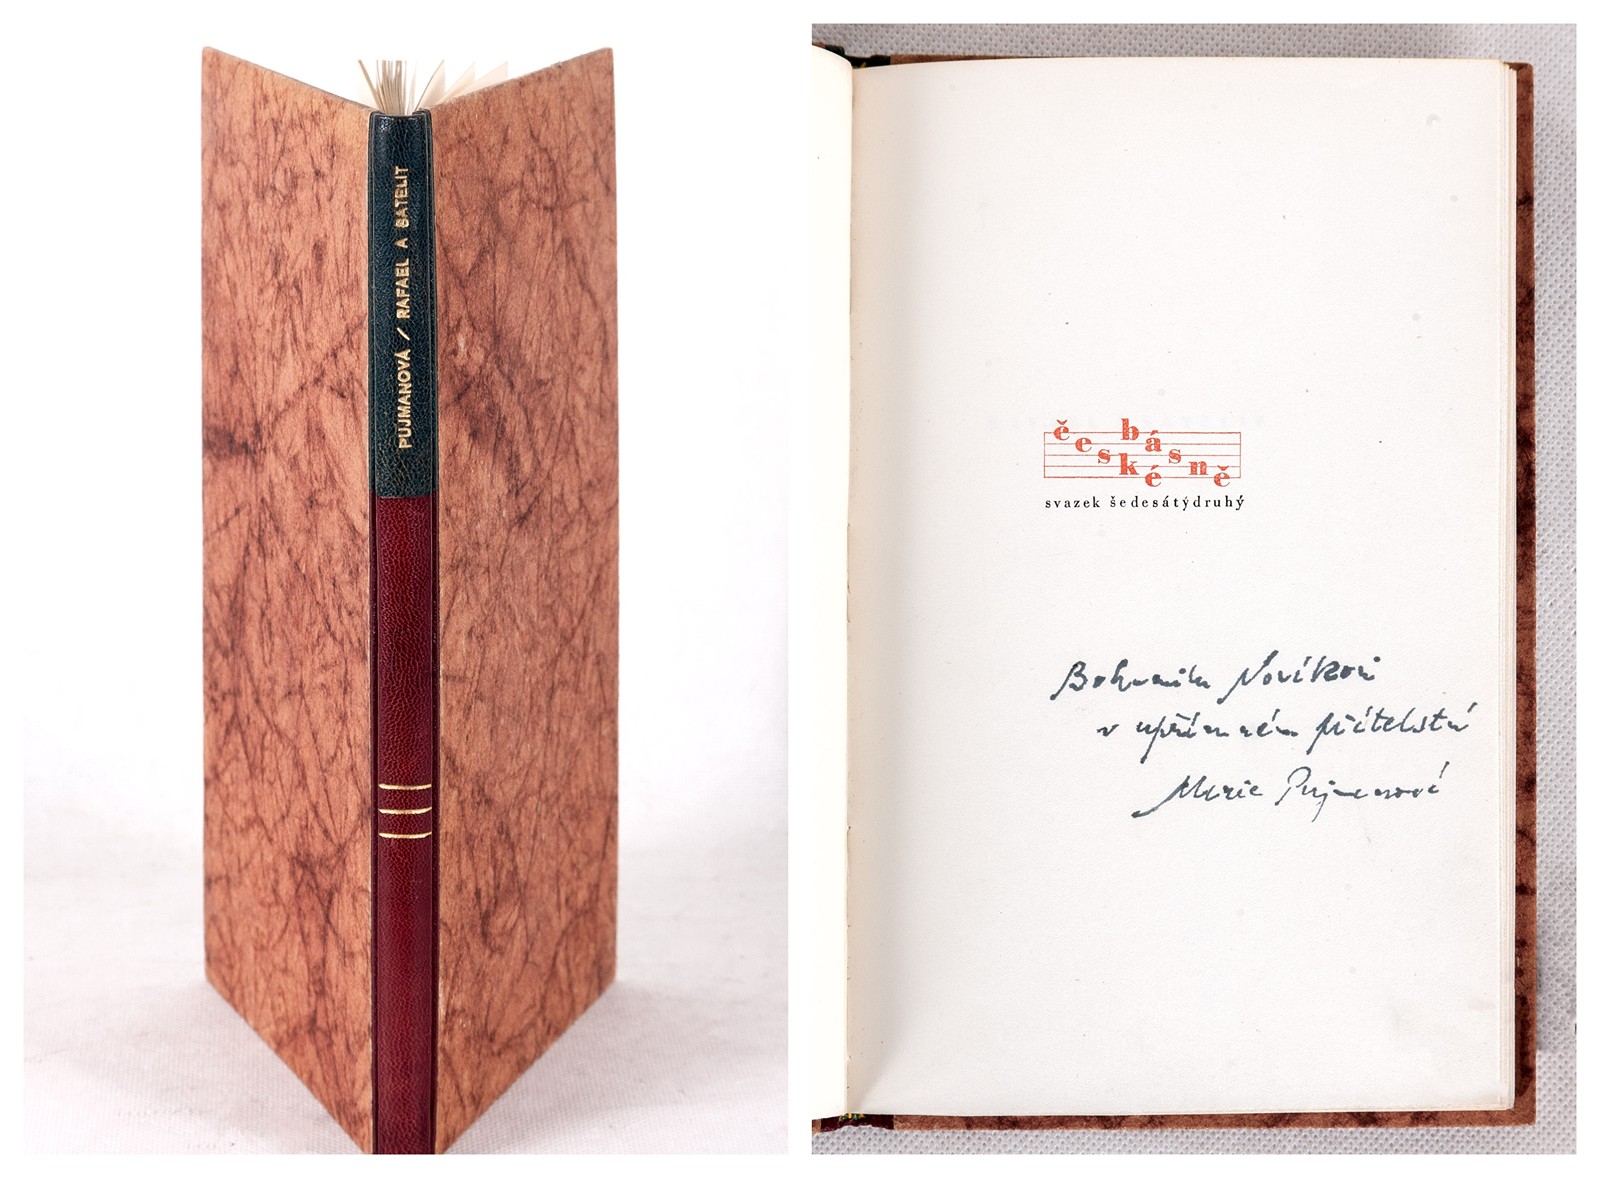 PUJMANOVÁ / RAFAEL A SATELIT
české básně
svazek šedesátýdruhý
Bohumilu Novákovi
v upřímném přátelství
Marie Pujmanová